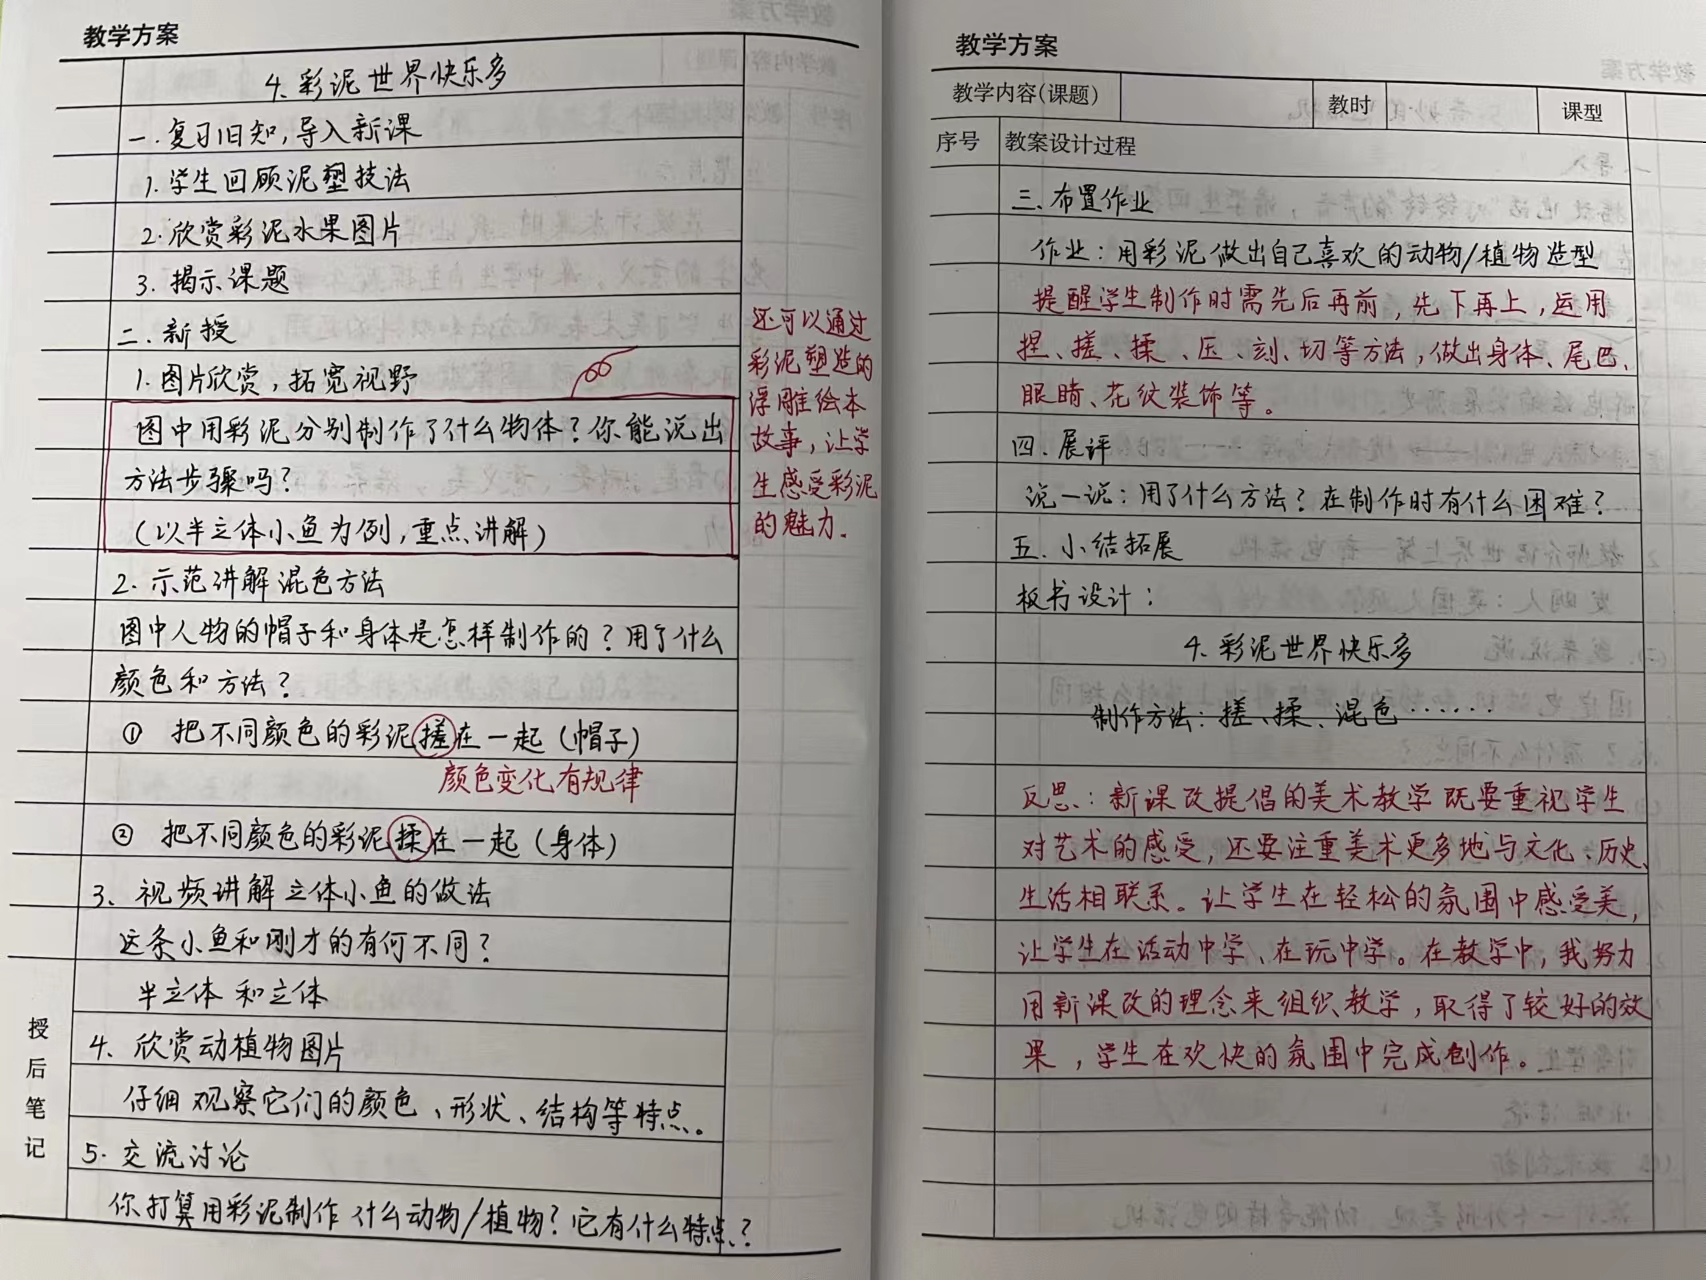 教学方案
4. 彩泥世界快乐多
一. 复习旧知,导入新课
1. 学生回顾泥塑技法
2. 欣赏彩泥水果图片
3. 揭示课题
二. 新授
1. 图片欣赏,拓宽视野
图中用彩泥分别制作了什么物体?你能说出
方法步骤吗?
(以半立体小鱼为例,重点讲解)
还可以通过
彩泥塑造的
浮雕绘本
故事,让学
生感受彩泥
的魅力.
2. 示范讲解混色方法
图中人物的帽子和身体是怎样制作的?用了什么
颜色和方法?
① 把不同颜色的彩泥搓在一起(帽子)
颜色变化有规律
② 把不同颜色的彩泥揉在一起(身体)
3、视频讲解立体小鱼的做法
这条小鱼和刚才的有何不同?
半立体 和立体
4、欣赏动植物图片
仔细观察它们的颜色、形状、结构等特点。
5. 交流讨论
你打算用彩泥制作什么动物/植物?它有什么特点?
授后笔记
教学方案
教学内容(课题) 教时 课型
序号 教案设计过程
三、布置作业
作业:用彩泥做出自己喜欢的动物/植物造型
提醒学生制作时需先后再前,先下再上,运用
捏、搓、揉、压、刻、切等方法,做出身体、尾巴、
眼睛、花纹装饰等。
四. 展评
说一说:用了什么方法?在制作时有什么困难?
五. 小结拓展
板书设计:
4. 彩泥世界快乐多
制作方法:搓、揉、混色······
反思:新课改提倡的美术教学既要重视学生
对艺术的感受,还要注重美术更多地与文化、历史、
生活相联系。让学生在轻松的氛围中感受美,
让学生在活动中学、在玩中学。在教学中,我努力
用新课改的理念来组织教学,取得了较好的效
果,学生在欢快的氛围中完成创作。